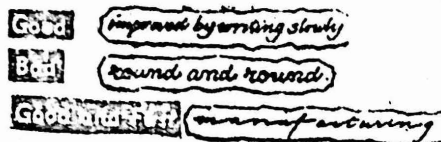 Good improved by writing slowly
Bad round and round.
Good and Fast manufacturing